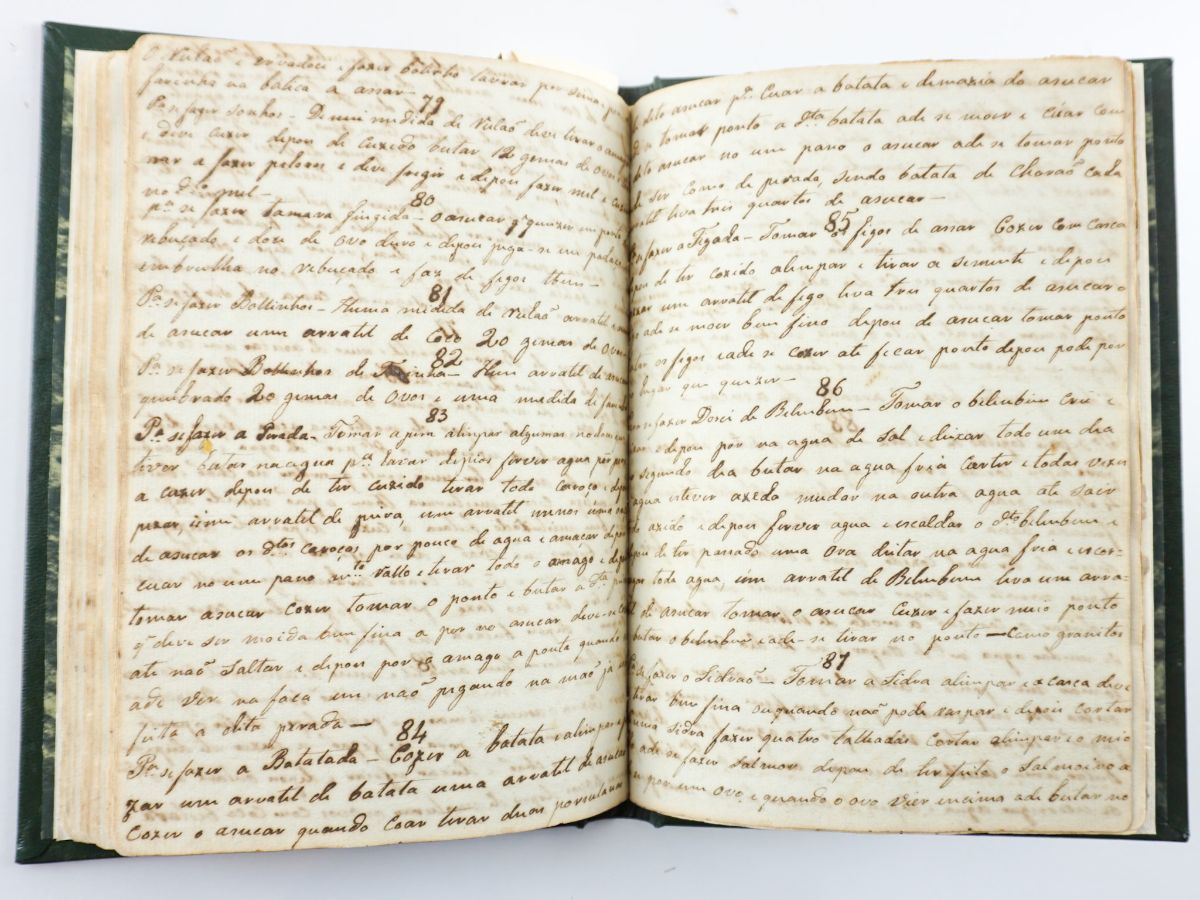 farinha na batica a assar
79
Pª se fazer sonhos - De uma medida de Nulaõ deve tirar o
e deve cuzer depois de cuzido butar 12 gemas de ovos
nar a fazer pelores e deve fregir e depois fazer mel e
no dito mel -
80
pª se fazer tamara fingida - o asucar q quizer em ponto
rebuçado e doze de ovo duro e depois pega-se em pedaço
embrulha no rebuçado e faz de figos tbem -
81
Pª se fazer Bollinhos - Huma medida de Nulaõ arratel
de asucar um arratel de Coco 20 gemas de Ovos
82
Pª se fazer Bollinhos de - Hum arratel de
quebrado 20 gemas de Ovos e uma medida de
83
Pª se fazer a Perada - Tomar a pera alimpar algumas
tiver butar na agua pª lavar depois ferver agua
a cuzer depois de ter cuzido tirar todo caroço e
pizar, um arratel de pera, um arratel menos uma
de asucar os dtos caroços por pouco de agua e amaçar
cuar no um pano rallo e tirar todo o amago e
tomar asucar cozer tomar o ponto e butar a dta
q deve ser moida bem fina a por no asucar deve-se
ate naõ saltar e depois por o amago a ponta quando
ade ver na faca em naõ pegando na maõ já
feita a dita perada -
84
Pª se fazer a Batatada - Cozer a batata e alimpar e
zar um arratel de batata uma arratel de asucar
Cozer o asucar quando Coar tirar duas
dito asucar pª Cuar a batata e demazia do asucar
a tomar ponto a dta batata ade se moer e cuar com
dito asucar no um pano o asucar ade se tomar ponto
de ser como de perada, sendo batata de Charaõ cada
arratel leva tres quartos de asucar -
85
se fazer a Figada - Tomar os figos de assar Cozer com casca
depois de ter cozido alimpar e tirar a semente e depois
pizar um arratel de figo leva tres quartos de asucar o
ade se moer bem fino depois de asucar tomar ponto
os figos e ade se cozer ate ficar ponto depois pode por
lugar que quizer -
86
se fazer Doce de Belimbim - Tomar o belimbim cru e
e depois por na agua de sal e deixar todo um dia
segundo dia butar na agua fria cortir e todas vezes
agua estiver azeda mudar na outra agua ate sair
azido e depois ferver agua e escaldar o dto belimbim e
depois de ter passado uma Ova deitar na agua fria e escor-
toda agua, um arratel de Belimbim leva um arra-
de asucar tomar o asucar Cuzer e fazer meio ponto
butar o belimbim e ade-se tirar no ponto - como granitos
87
se fazer o Sidraõ - Tomar a Sidra alimpar e a casca deve
tirar bem fina ou quando naõ pode raspar e depois cortar
uma sidra fazer quatro talhadas cortar alimpar o mio
ade se fazer salmor depois de ter feito o salmoiro a
se por um ovo e quando o ovo vier em cima ade butar no